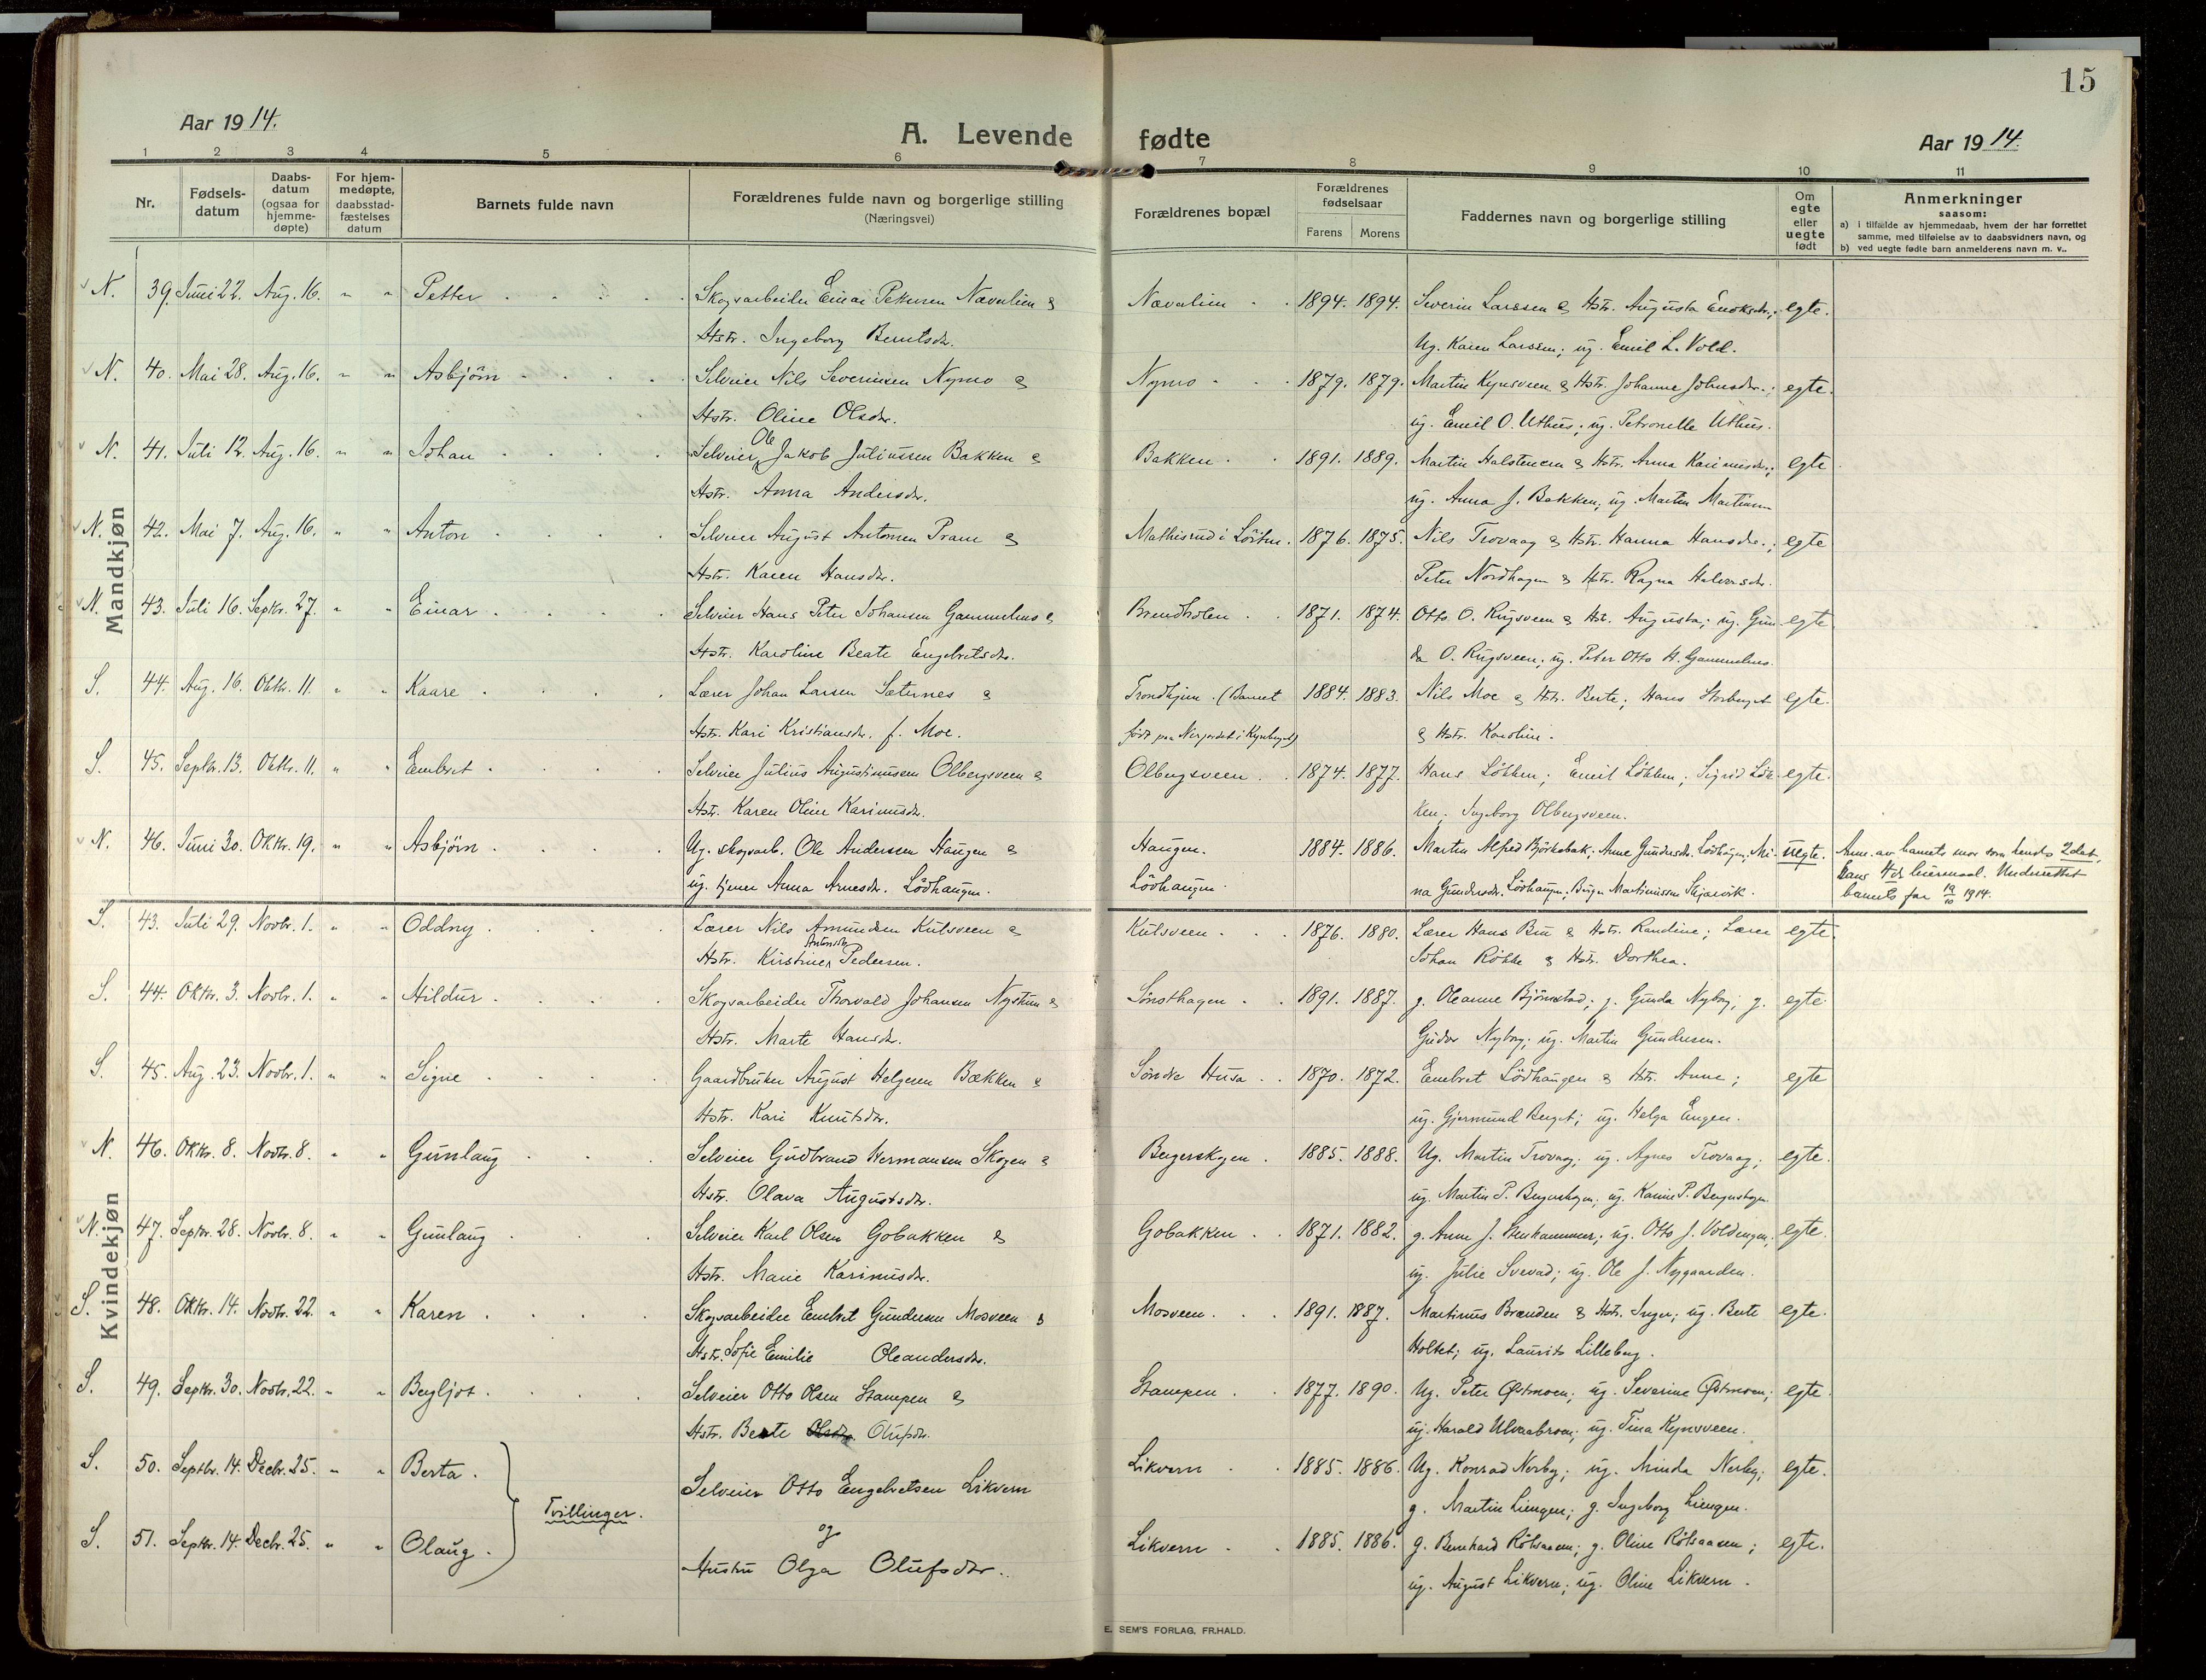 15
Aar 1914.
A. Levende fødte
Aar 1914.
1 2 3 4 5 6 7 8 9 10 11
Nr.
Fødsels-
datum
Daabs-
datum
(ogsaa for
hjemme-
døpte)
For hjem-
medøpte,
daabsstad-
fæstelses
datum
Barnets fulde navn
Forældrenes fulde navn og borgerlige stilling
(Næringsvei)
Forældrenes bopæl
Forældrenes
fødselsaar
Farens Morens
Faddernes navn og borgerlige stilling
Om
egte
eller
uegte
født
Anmerkninger
saasom:
a) i tilfælde av hjemmedaab, hvem der har forrettet
samme, med tilføielse av to daabsvidners navn, og
b) ved uegte fødte barn anmelderens navn m. v..
Mandkjøn
N. 39. Juni 22. Aug. 16. " " Petter Skogsarbeider Einar Petersen Nævalien & Nævalien 1894. 1894. Severin Larssen & Hstr. Augusta egte.
Hstr. Ingeborg Berntsdr. Ug. Karen Larssen; ug. Emil L. Vold.
N. 40. Mai 28. Aug. 16. " " Asbjörn Selveier Nils Severinsen Nymo & Nymo 1879. 1879. Martin Kynsveen & Hstr. Johanne Johnsdr.; egte.
Hstr. Oline Olsdr. ug. Emil O. Uthus; ug. Petronelle Uthus.
N. 41. Juli 12. Aug. 16. " " Johan Selveier Ole Jakob Juliussen Bakken & Bakken 1891. 1889. Martin Halstensen & Hstr. Anna Karinusdr.; egte
Hstr. Anna Andersdr. ug. Anna J. Bakken; ug. Martin
N. 42. Mai 7. Aug. 16. " " Anton Selveier August Antonsen Pram & Mathisrud i Löiten. 1876. 1875. Nils Trovaag & Hstr. Hanna Hansdr.; egte
Hstr. Karen Hansdr. Peter Nordhagen & Hstr. Ragna Halvorsdr.
N. 43. Juli 16. Septr. 27. " " Einar Selveier Hans Peter Johansen Gammelhus & Brendholen 1871. 1874. Otto O. Rugsveen & Hstr. Augusta; ug. Gun- egte
Hstr. Karoline Beate Engebretsdr. da O. Rugsveen; ug. Peter Otto H. Gammelhus.
S. 44. Aug. 16. Oktr. 11. " " Kaare Lærer Johan Larsen Sæternes & Trondhjem. (Barnet 1884. 1883. Nils Moe & Hstr. Berte; Hans Storberget egte.
Hstr. Kari Kristiansdr. f. Moe. født paa i Kynberget) & Hstr. Karoline.
S. 45. Septbr. 13. Oktr. 11. " " Embret Selveier Julius Augustinussen Olbergsveen & Olbergsveen 1874. 1877. Hans Løkken; Emil Løkken; Sigrid Løk- egte.
Hstr. Karen Oline Karinusdr. ken; Ingeborg Olbergsveen.
N. 46. Juni 30. Oktr. 19. " " Asbjörn Ug. skogsarb. Ole Andersen Haugen & Haugen. 1884. 1886. Martin Alfred Björkebak; Anne Gundersdr. Lødhaugen; Mi- uegte. Anm. av barnets mor som hendes 2det,
ug. tjener Anna Arnesdr. Lödhaugen. Lödhaugen. na Gundersdr. Lödhaugen; Birger Martinussen Skjærvik. hans 4de leiermaal. Underrettet
barnets far 19/10 1914.
Kvindekjøn
S. 43. Juli 29. Novbr. 1. " " Oddny Lærer Nils Amundsen Kulsveen & Kulsveen 1876. 1880. Lærer Hans Bru & Hstr. Randine; Lærer egte.
Hstr. Kirstine Antonette Pedersen. Johan Røkke & Hstr. Dorthea.
S. 44. Oktr. 3. Novbr. 1. " " Hildur Skogsarbeider Thorvald Johansen Nystuen & Sönsthagen 1891. 1887. g. Oleanne Björnstad; g. Gunda Nyborg; g. egte.
Hstr. Marte Hansdr. Nyborg; ug. Martin Gundersen.
S. 45. Aug. 23. Novbr. 1. " " Signe Gaardbruker August Helgesen Bækken & Söndre Husa 1870. 1872. Embret Lödhaugen & Hstr. Anne; egte
Hstr. Kari Knutsdr. ug. Gjermund Berget; ug. Helga Engen.
N. 46. Oktr. 8. Novbr. 8. " " Gunlaug Selveier Gudbrand Hermansen Skogen & Bergerskogen 1885. 1888. Ug. Martin Trovaag; ug. Agnes Trovaag; egte.
Hstr. Olava Augustsdr. ug. Martin P. Bergerskogen; ug. Karine P. Bergerskogen.
N. 47. Septr. 28. Novbr. 8. " " Gunlaug Selveier Karl Olsen Gobakken & Gobakken 1871. 1882. g. Anne J. Stenhammer; ug. Otto J. Voldengen; egte.
Hstr. Marie Karinusdr. ug. Julie Svevad; ug. Ole J. Nygaarden.
S. 48. Oktr. 14. Novbr. 22. " " Karen Skogsarbeider Embret Gundersen Mosveen & Mosveen 1891. 1887. Martinus Brænden & Hstr. Inger; ug. Berte egte.
Hstr. Sofie Emilie Oleandersdr. Holtet; ug. Laurits Lilleberg.
S. 49. Septr. 30. Novbr. 22. " " Bergljot Selveier Otto Olsen Stampen & Stampen 1877. 1890. Ug. Peter Østmoen; ug. Severine Østmoen; egte
Hstr. Berte Olufsdr. ug. Harald Ulvaabroen; ug. Tina Kynsveen.
S. 50. Septbr. 14. Decbr. 25. " " Berta. Selveier Otto Engebretsen Likvern Likvern 1885. 1886. Ug. Konrad Nerby; ug. Minda Nerby; egte.
Tvillinger. og g. Martin Liengen; g. Ingeborg Liengen.
S. 51. Septbr. 14. Decbr. 25. " " Olaug. Hustru Olga Olufsdr. Likvern 1885. 1886. g. Bernhard Rötsaasen; g. Oline Rötsaasen; egte.
ug. August Likvern; ug. Oline Likvern.
E. SEM'S FORLAG, FR.HALD.